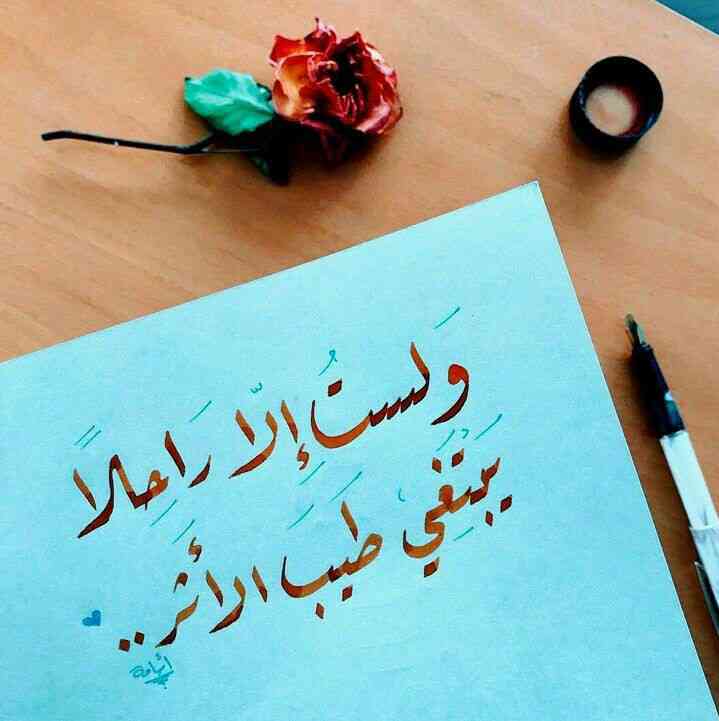 وَلستُ إِلّا رَاحِلاً
يَبْتَغِي طِيَبَ الأَثَر..